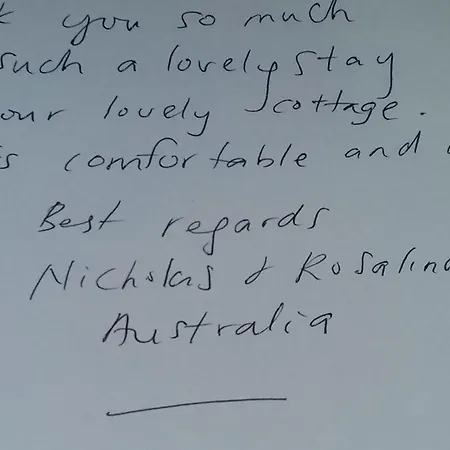 you so much
such a lovely stay
our lovely cottage.
comfortable and
Best regards
Nicholas & Rosalind
Australia